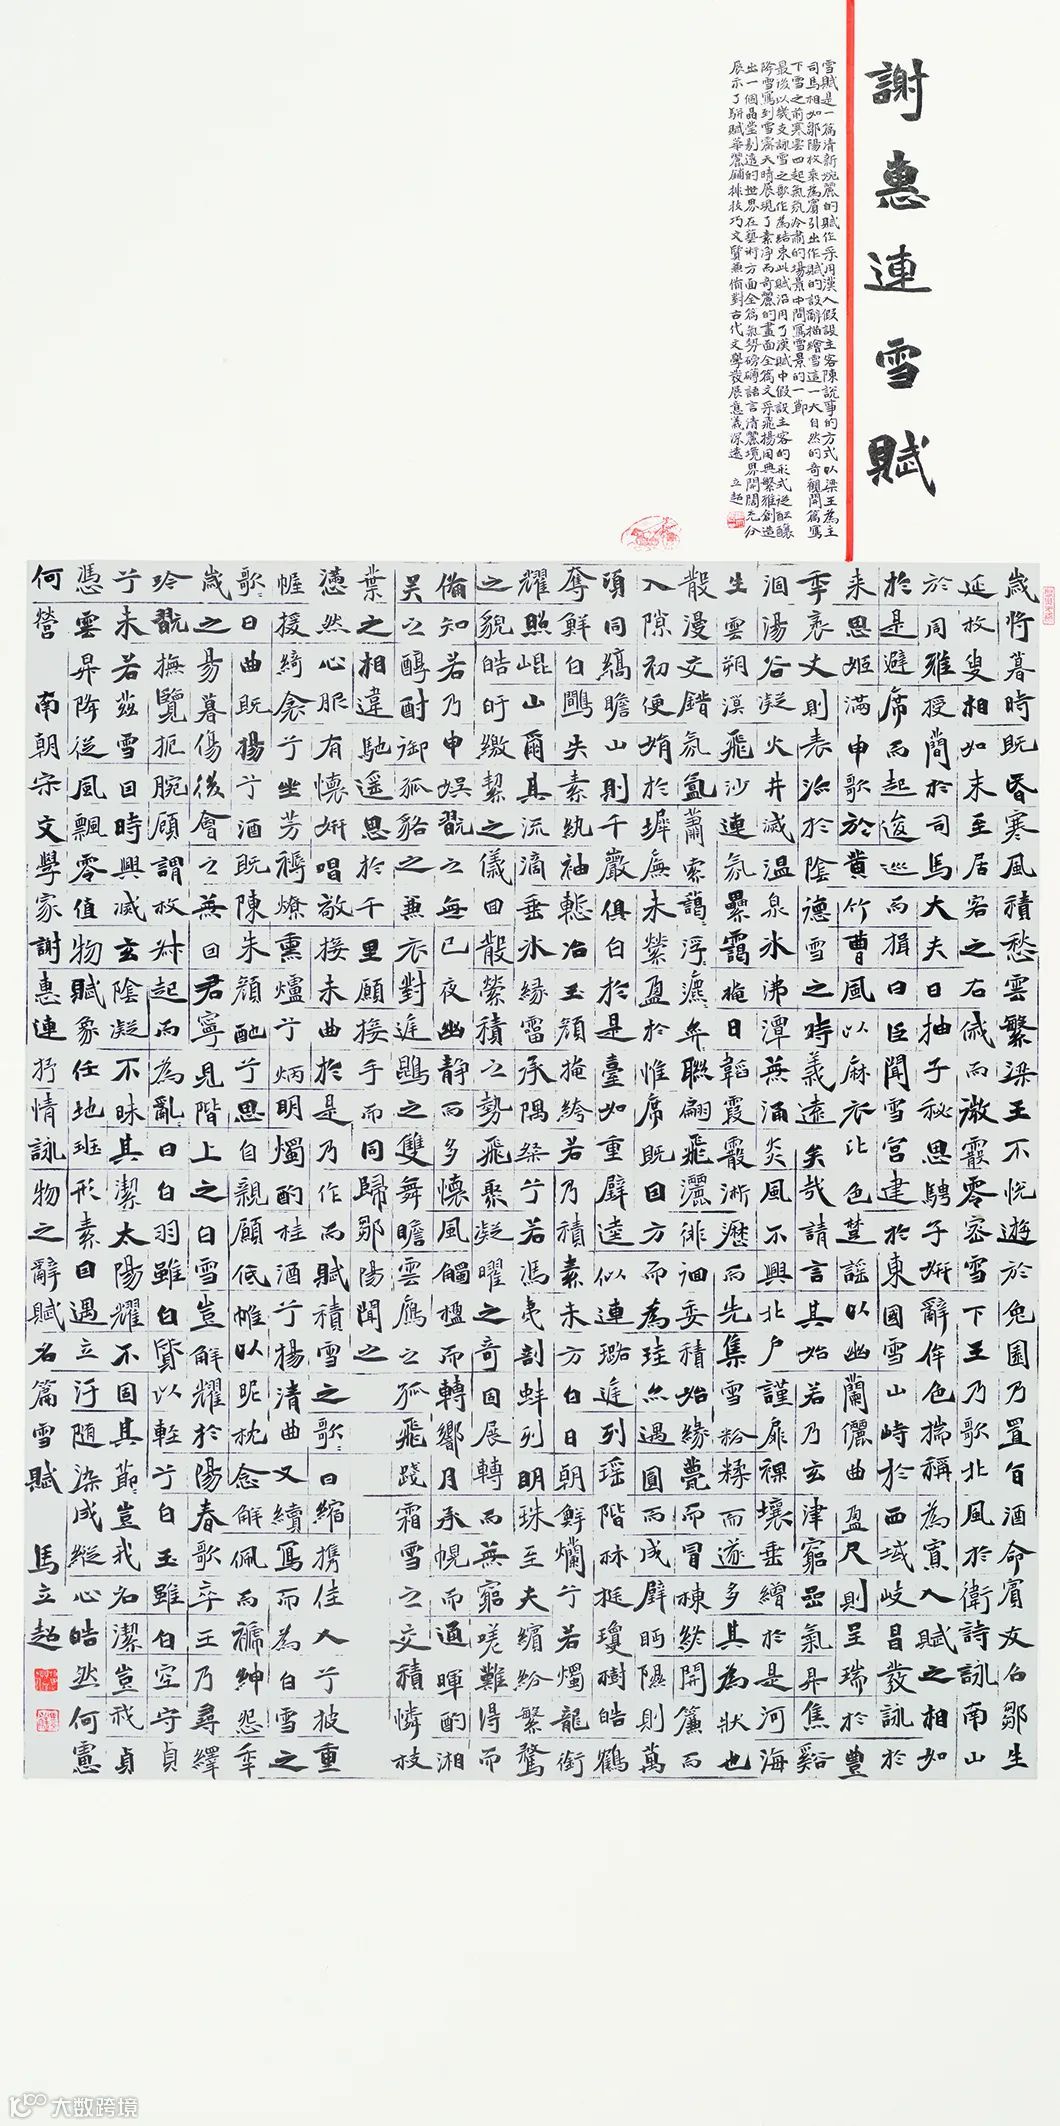 謝惠連雪賦
雪賦是一篇清新婉麗的賦作采用漢人假設主客陳說事的方式以梁王為主
司馬相如鄒陽枚乘為賓引出作賦的設辭描繪雪這一大自然的奇觀開篇寫
下雪之前寒雲四起氣氛冷肅的場景中間寫雪景的一節
最後以幾支詠雪之歌作為結束此賦沿用了漢賦中假設主客的形式從醞釀
降雪寫到雪霽天晴展現了素淨而奇麗的畫面全篇文采飛揚用典繁雅創造
出一個晶瑩剔透的世界在藝術方面全篇氣勢磅礴語言清麗境界開闊充分
展示了駢賦華麗鋪排技巧文質兼備對古代文學發展意義深遠 立超
歲將暮時既昏寒風積愁雲繁梁王不悅遊於兔園乃置旨酒命賓友召鄒生
延枚叟相如末至居客之右俄而微霰零密雪下王乃歌北風於衛詩詠南山
於周雅授簡於司馬大夫曰抽子秘思騁子妍辭侔色揣稱為寡人賦之相如
於是避席而起逡巡而揖曰臣聞雪宮建於東國雪山峙於西域岐昌發詠於
来思姬滿申歌於黃竹曹風以麻衣比色楚謠以幽蘭儷曲盈尺則呈瑞於豐
年袤丈則表沴於陰德雪之時義遠矣哉請言其始若乃玄律窮嚴氣昇焦谿
涸湯谷凝火井滅溫泉冰沸潭無涌炎風不興北戶墐扉裸壤垂繒於是河海
生雲朔漠飛沙連氛累靄掩日韜霞霰淅瀝而先集雪粉糅而遂多其為狀也
散漫交錯氛氳蕭索藹浮瀌弈聯翩飛灑徘徊委積始緣甍而冒棟終開簾而
入隙初便娟於墀廡末縈盈於帷席既因方而為珪亦遇圓而成璧眄隰則萬
頃同縞瞻山則千巖俱白於是臺如重璧逵似連璐庭列瑶階林挺瓊樹皓鶴
奪鮮白鷴失素紈袖慙冶玉顏掩姱若乃積素未方白日朝鮮爛兮若燭龍銜
耀照崐山爾其流滴垂冰緣霤承隅粲兮若馮夷剖蚌列明珠至夫繽紛繁騖
之貌皓旰繳絜之儀回散縈積之勢飛聚凝曜之奇固展轉而無窮嗟難得而
備知若乃申娛翫之無已夜幽靜而多懷風觸楹而轉響月承幌而通暉酌湘
吳之醇酎御狐貉之兼衣對庭鵾之雙舞瞻雲鴈之孤飛踐霜雪之交積憐枝
葉之相違馳遥思於千里願接手而同歸鄒陽聞之
懣然心服有懷妍唱敬接末曲於是乃作而賦積雪之歌曰縮携佳人兮披重
幄援綺衾兮坐芳褥燎熏爐兮炳明燭酌桂酒兮揚清曲又續寫而為白雪之
歌曰曲既揚兮酒既陳朱顏酡兮思自親願低帷以昵枕念解佩而褫紳怨年
歲之易暮傷後會之無因君寧見階上之白雪豈鮮耀於陽春歌卒王乃尋繹
吟翫撫覽扼腕顧謂枚叔起而為亂曰白羽雖白質以輕兮白玉雖白空守貞
兮未若茲雪因時興滅玄陰凝不昧其潔太陽耀不固其節豈我名潔豈我貞
憑雲昇降從風飄零值物賦象任地班形素因遇立汙隨染成縱心皓然何慮
何營 南朝宋文學家謝惠連抒情詠物之辭賦名篇雪賦 馬立超
大数跨境